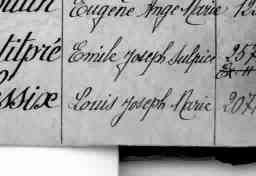 Eugène Ange Marie
titpré Emile Joseph Sulpice 257
ssixe Louis Joseph Marie 207